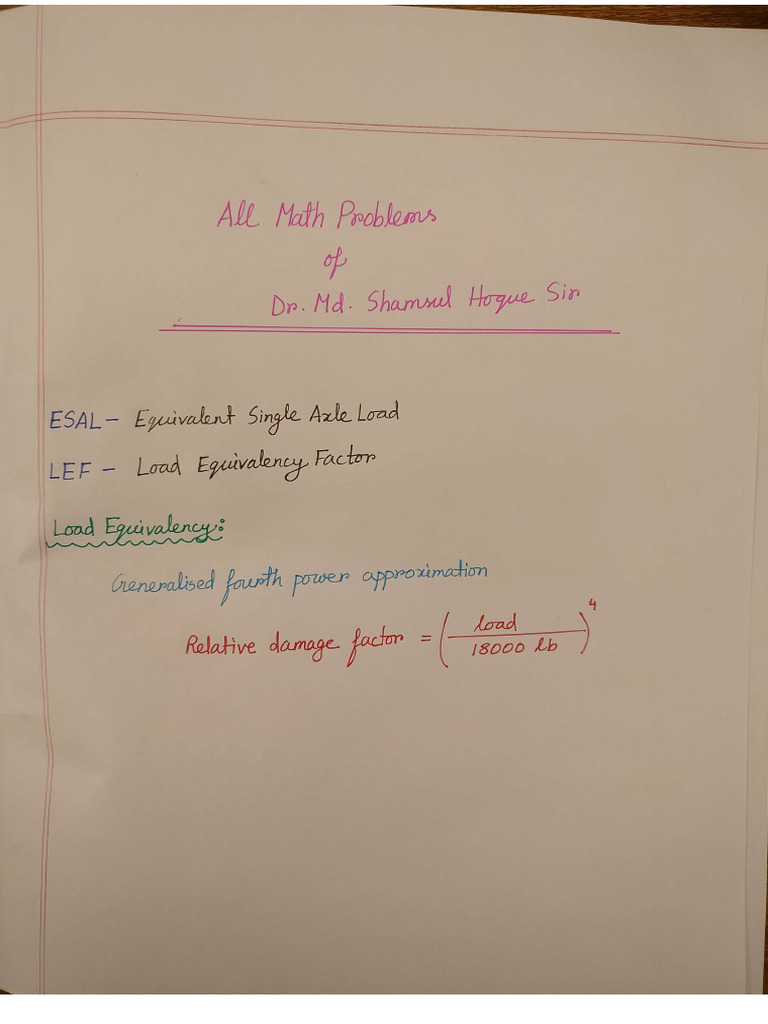 All Math Problems
of
Dr. Md. Shamsul Hoque Sir
ESAL - Equivalent Single Axle Load
LEF - Load Equivalency Factor
Load Equivalency:
Generalised fourth power approximation
Relative damage factor = (load / 18000 lb)^4